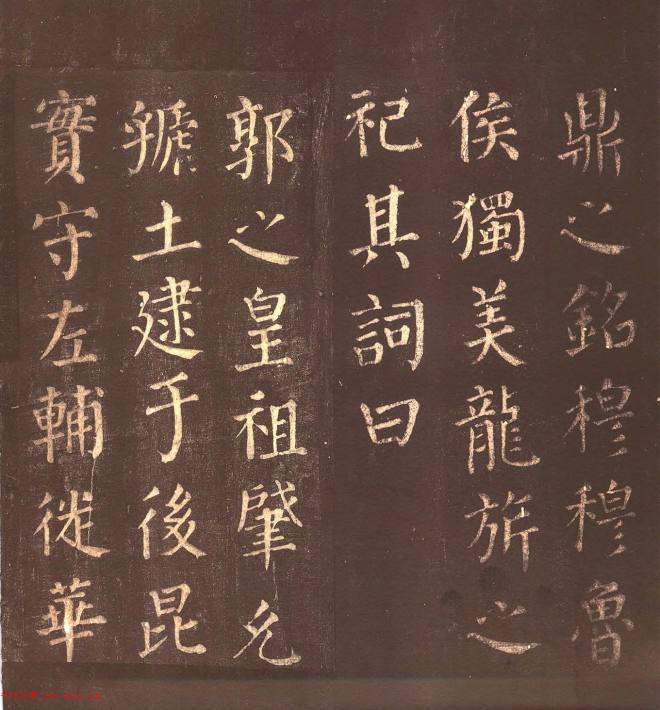 鼎之銘穆穆魯
侯獨美龍旂之
祀其詞曰
郭之皇祖肇允
虢土逮于後昆
實守左輔徙華